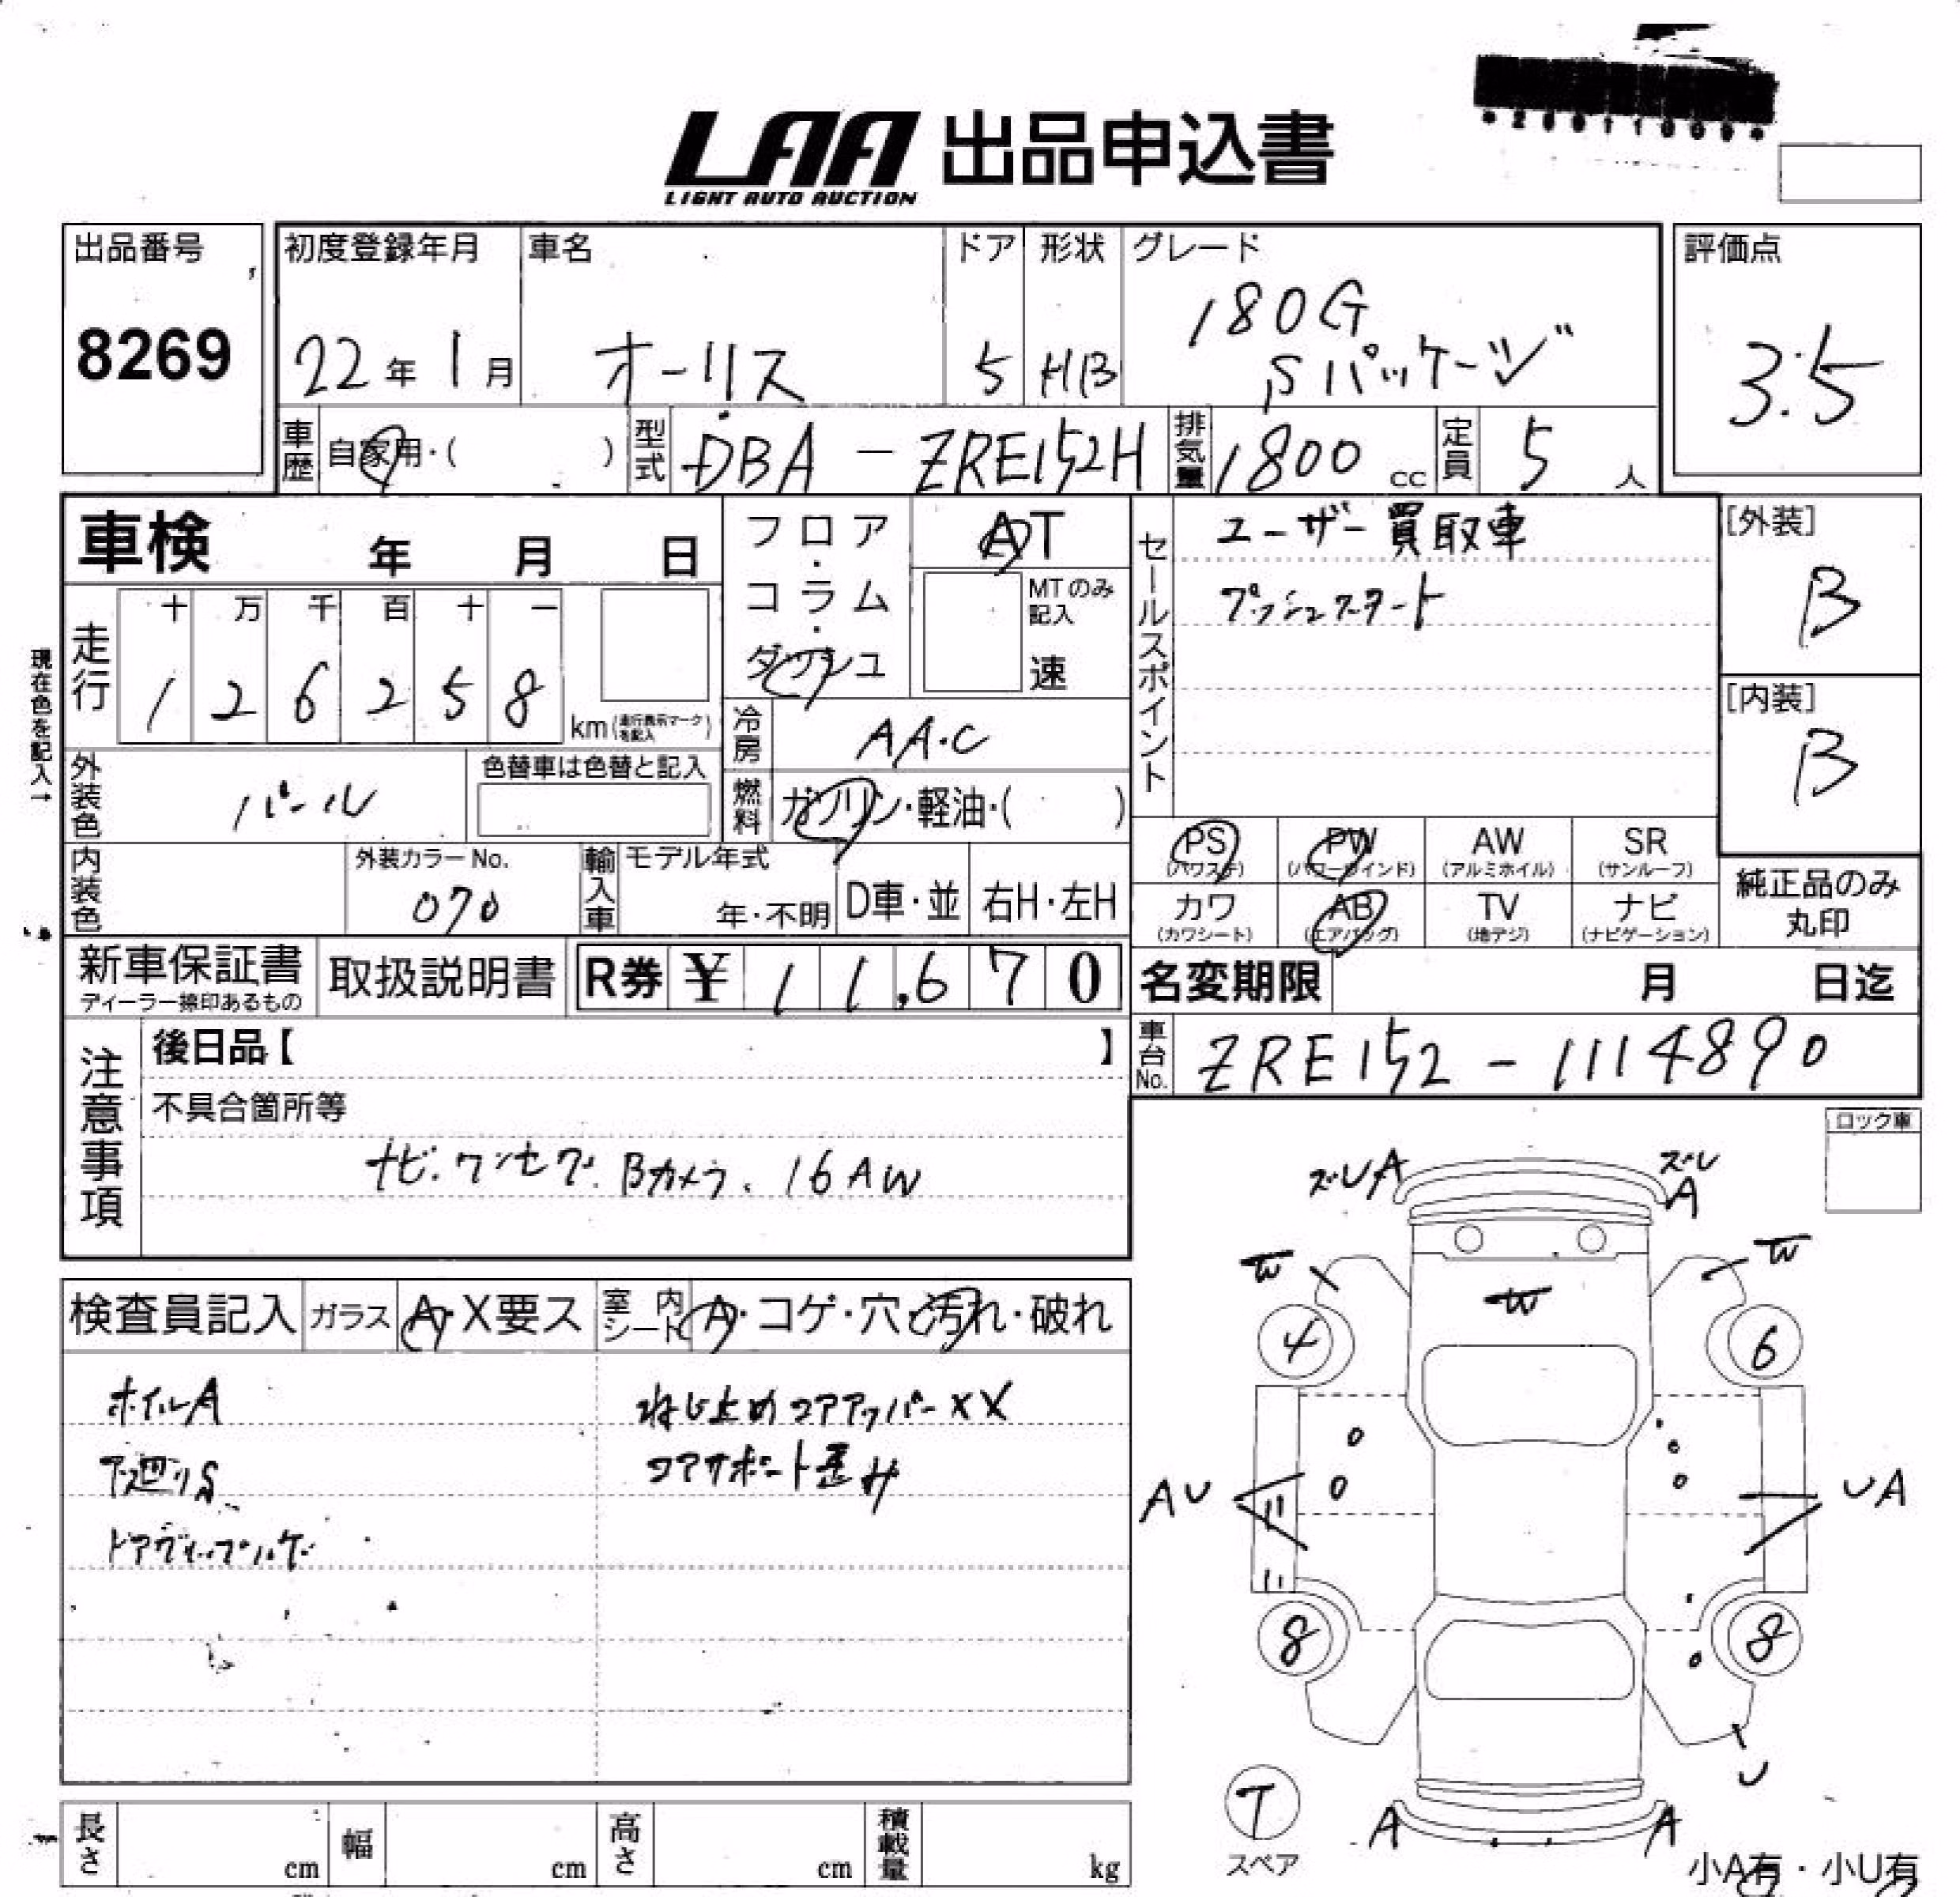 *20011009*
LAA 出品申込書
LIGHT AUTO AUCTION
出品番号
8269
初度登録年月
22年1月
車名
オーリス
ドア
5
形状
HB
グレード
180G
Sパッケージ
評価点
3.5
車歴
自家用・( )
型式
DBA-ZRE152H
排気量
1800cc
定員
5人
車検 年 月 日
フロア・コラム・ダッシュ
AT
MTのみ記入
速
セールスポイント
ユーザー買取車
プッシュスタート
[外装]
B
[内装]
B
現在色を記入→
走行
十 万 千 百 十 一
1 2 6 2 5 8
km(走行表示マークを記入)
冷房
AA.C
燃料
ガソリン・軽油・( )
外装色
パール
色替車は色替と記入
内装色
外装カラーNo.
070
輸入車
モデル年式
年・不明
D車・並
右H・左H
PS AW PW SR
(パワステ) (パワーウインド) (アルミホイル) (サンルーフ)
カワ AB TV ナビ
(カワシート) (エアバッグ) (地デジ) (ナビゲーション)
純正品のみ丸印
新車保証書
ディーラー捺印あるもの
取扱説明書
R券 ¥ 11,670
名変期限 月 日迄
車台No.
ZRE152-1114890
注意事項
後日品【 】
不具合箇所等
ナビ.ワンセグ.Bカメラ、16AW
ロック車
検査員記入
ガラス A・X要ス
室内シート A・コゲ・穴・汚れ・破れ
ホイルA
ねじ止めコアアッパーXX
コアサポート歪み
ドアグリップハゲ
ズレA
ズレ
A
W
W
W
4
6
AU
UA
8
8
U
T
スペア
A
A
小A有・小U有
長さ cm
幅 cm
高さ cm
積載量 kg